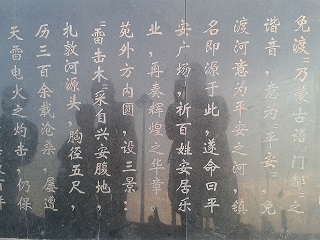 免渡”乃蒙古语“门都”之
谐音，意为“平安”，免
渡河意为平安之河，镇
名即源于此，遂命曰平
安广场，祈百姓安居乐
业，再奏辉煌之华章
苑外方内圆，设三景：
“雷击木”采自兴安腹地，
扎敦河源头，胸径五尺，
历三百余载沧桑，屡遭
天雷电火之灼击，仍保